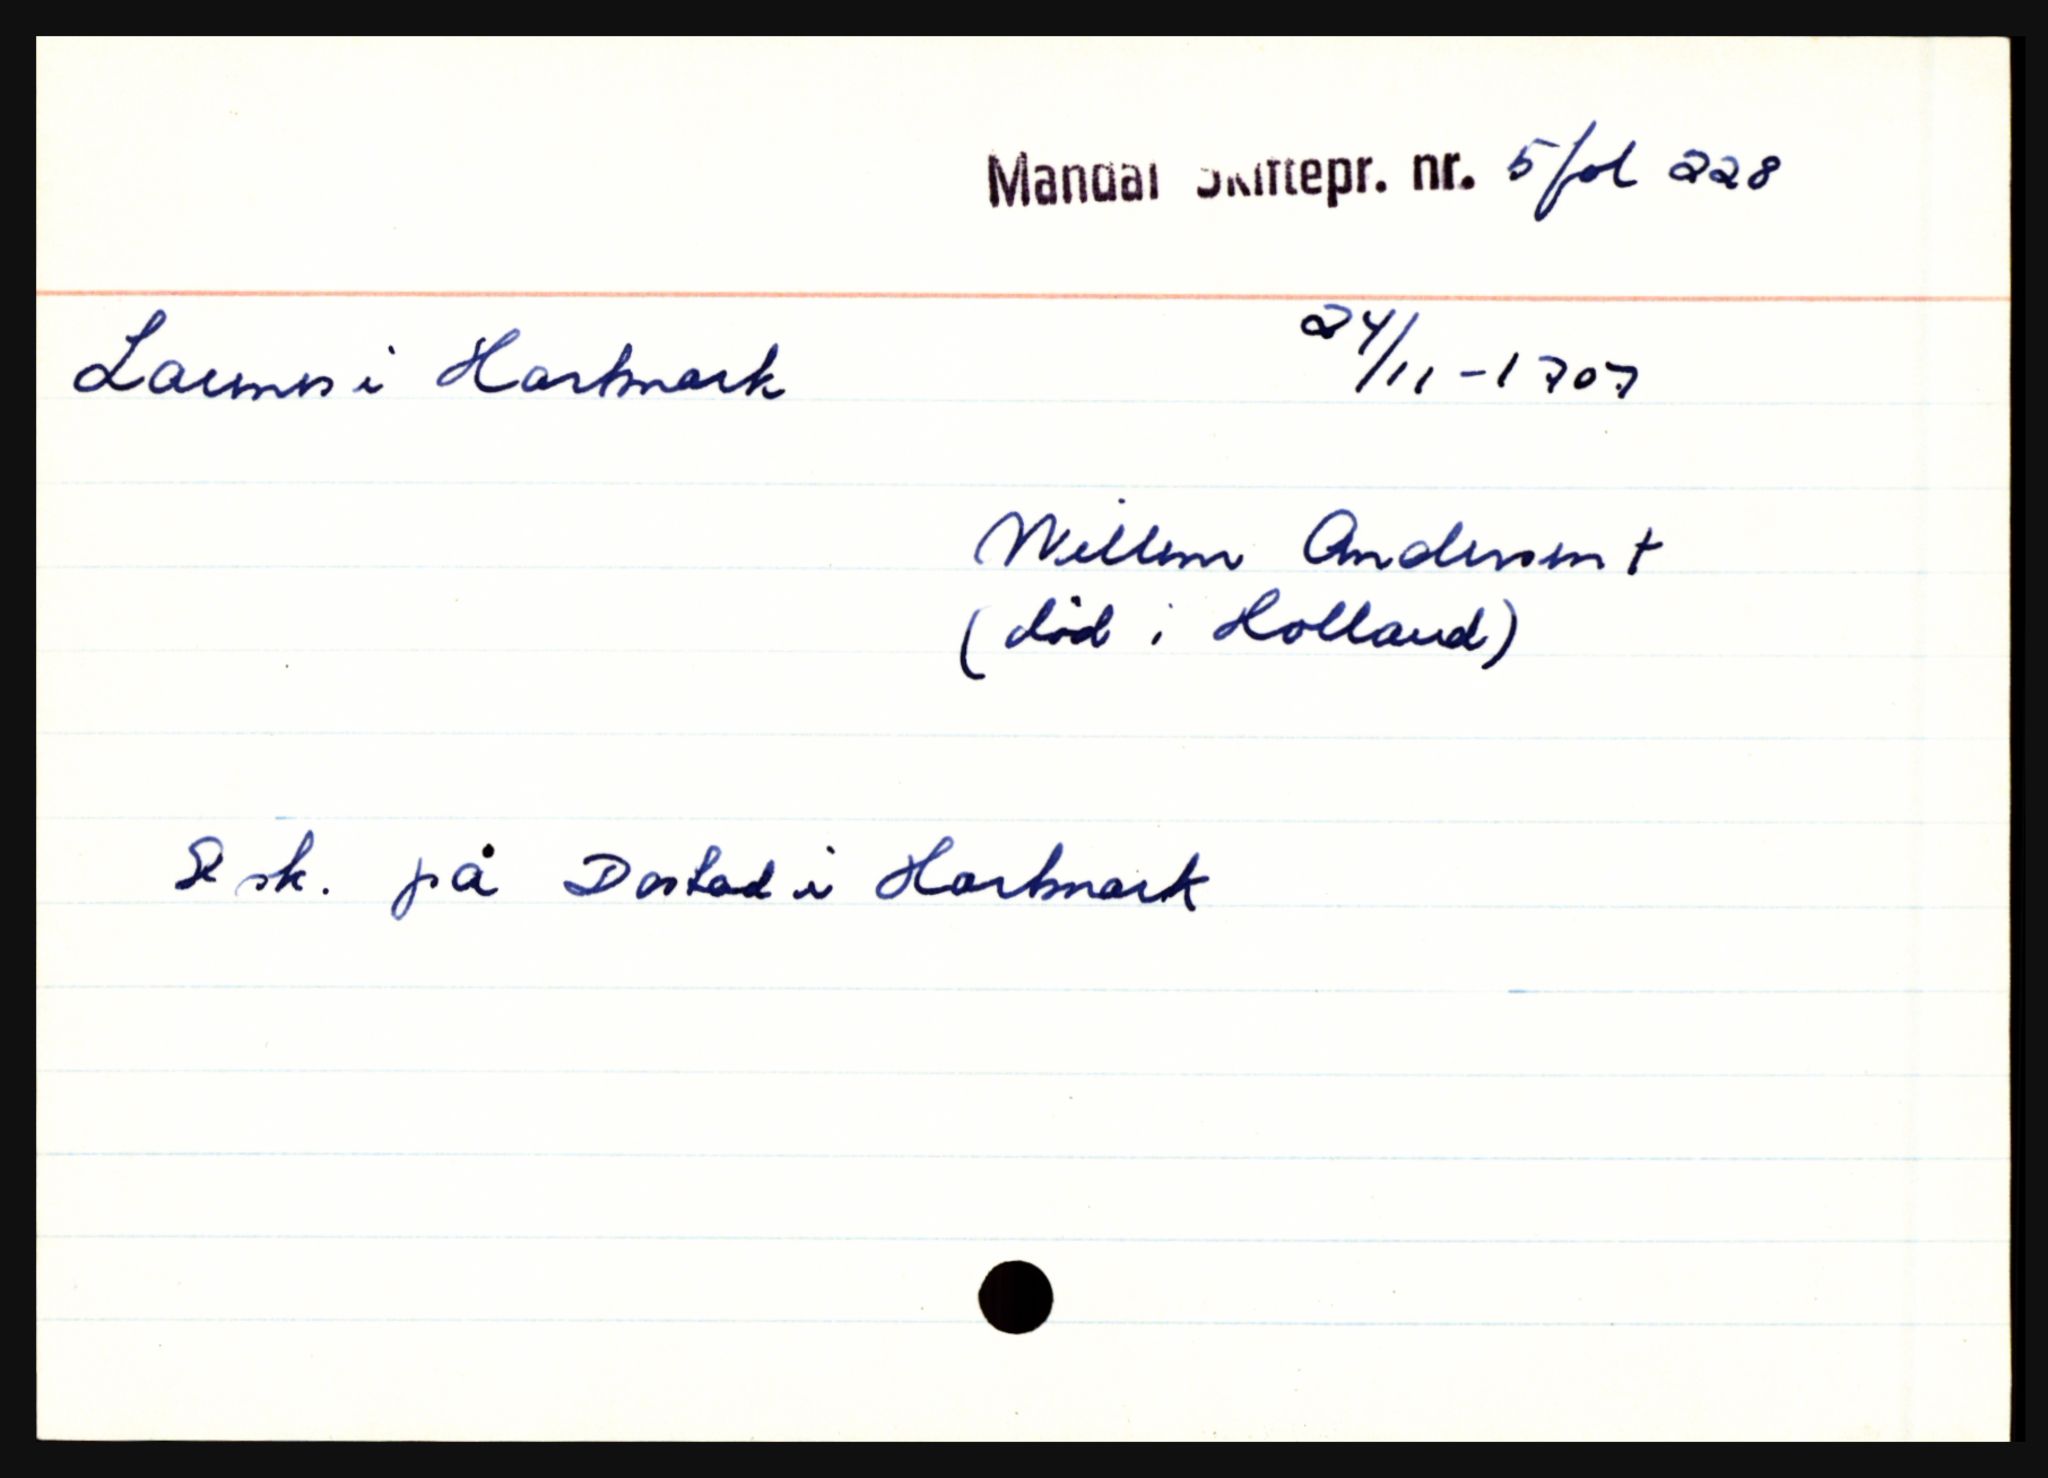 Mandal Skiftepr. nr. 5 fol 228
Launes i Hartmark 24/11-1707
Willem Andersen +
(död i Holland)
sk. på Dastad i Hartmark